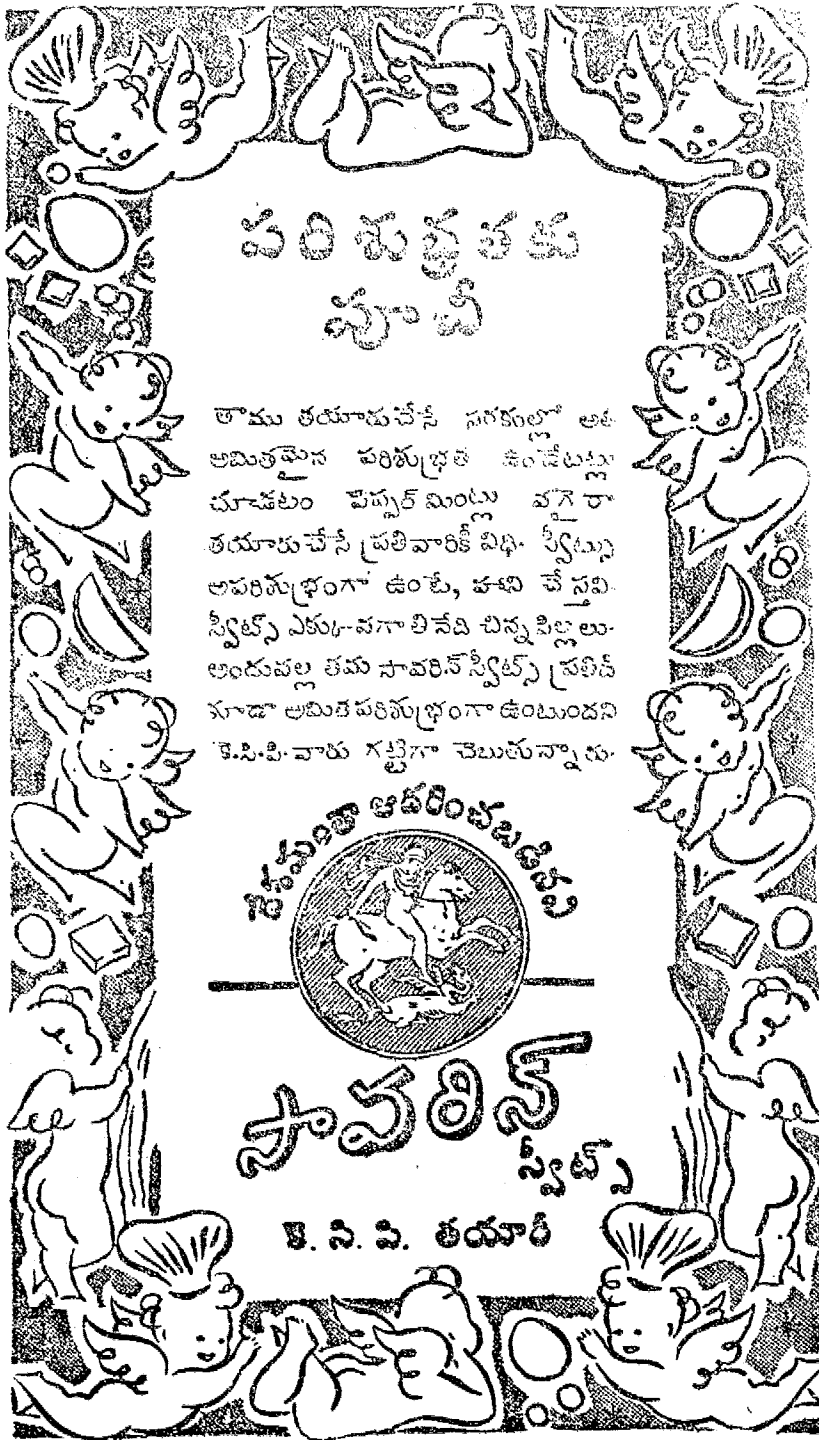 పరిశుభ్రతకు
పూచీ
తాము తయారుచేసే సరకుల్లో అతి
అమితమైన పరిశుభ్రత ఉండేటట్లు
చూడటం పిప్పర్ మింట్లు వగైరా
తయారుచేసే ప్రతివారికీ విధి. స్వీట్సు
అపరిశుభ్రంగా ఉంటే, హాని చేస్తవి.
స్వీట్స్ ఎక్కువగా తినేది చిన్నపిల్లలు.
అందువల్ల తమ సావరిన్ స్వీట్స్ ప్రతిదీ
కూడా అమితపరిశుభ్రంగా ఉంటుందని
కె.సి.పి. వారు గట్టిగా చెబుతున్నారు.
దేశమంతా ఆదరించబడినవి
సావరిన్
స్వీట్స్
కె. సి. పి. తయారీ